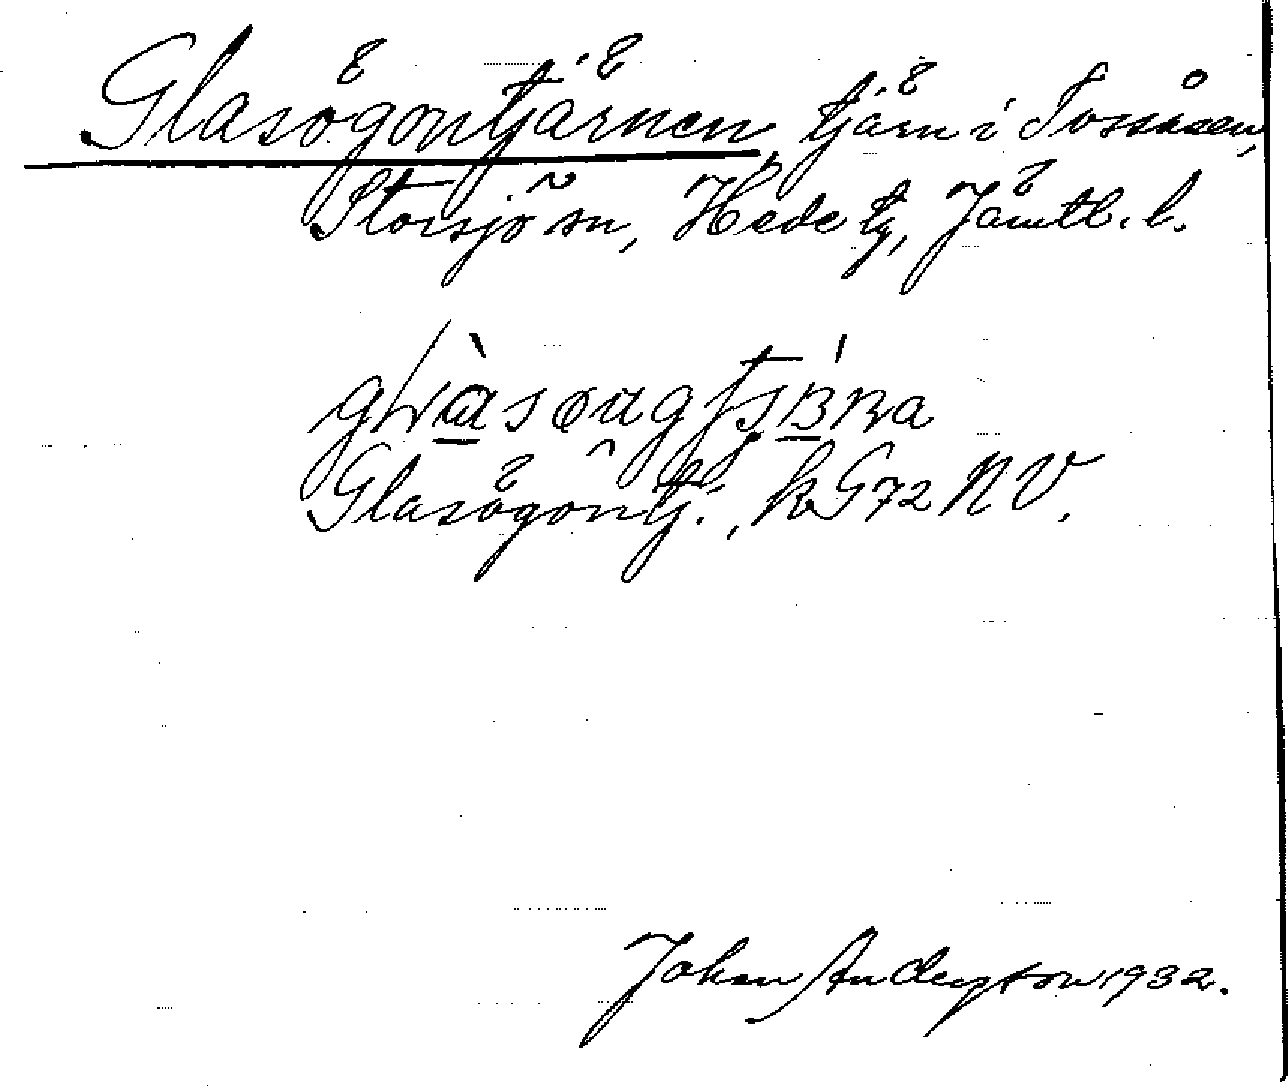 Glasögontjärnen, tjärn i Tossåsen,
Storsjö sn, Hede tg, Jämtl. l.
Glasögontj., kG72 NV.
Johan Anderson 1932.